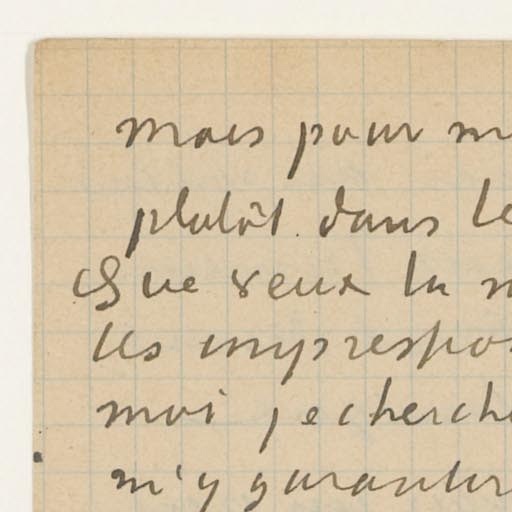 mais pour m
plutôt dans le
Que veux tu m
les impressio
moi je cherche
m'y garantir